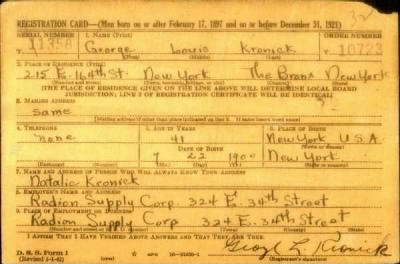 REGISTRATION CARD—(Men born on or after February 17, 1897 and on or before December 31, 1921)
SERIAL NUMBER 1. NAME (Print) ORDER NUMBER
T 11358 George Louis Kronick T 10723
(First) (Middle) (Last)
2. PLACE OF RESIDENCE (Print)
215 E. 164th St. New York The Bronx New York
(Number and street) (Town, township, village, or city) (County) (State)
[THE PLACE OF RESIDENCE GIVEN ON THE LINE ABOVE WILL DETERMINE LOCAL BOARD
JURISDICTION; LINE 2 OF REGISTRATION CERTIFICATE WILL BE IDENTICAL]
3. MAILING ADDRESS
Same
[Mailing address if other than place indicated on line 2. If same insert word same]
4. TELEPHONE 5. AGE IN YEARS 6. PLACE OF BIRTH
none 41 New York U.S.A.
DATE OF BIRTH
7 22 1900 New York
(Exchange) (Number) (Mo.) (Day) (Yr.) (State or country)
7. NAME AND ADDRESS OF PERSON WHO WILL ALWAYS KNOW YOUR ADDRESS
Natalie Kronick
8. EMPLOYER'S NAME AND ADDRESS
Radion Supply Corp. 324 E. 34th Street
9. PLACE OF EMPLOYMENT OR BUSINESS
Radion Supply Corp 324 E. 34th Street
(Number and street or R. F. D. number) (Town) (County) (State)
I AFFIRM THAT I HAVE VERIFIED ABOVE ANSWERS AND THAT THEY ARE TRUE.
D. S. S. Form 1
(Revised 1-1-42) (over) GPO 16-21630-1
George L. Kronick
(Registrant's signature)